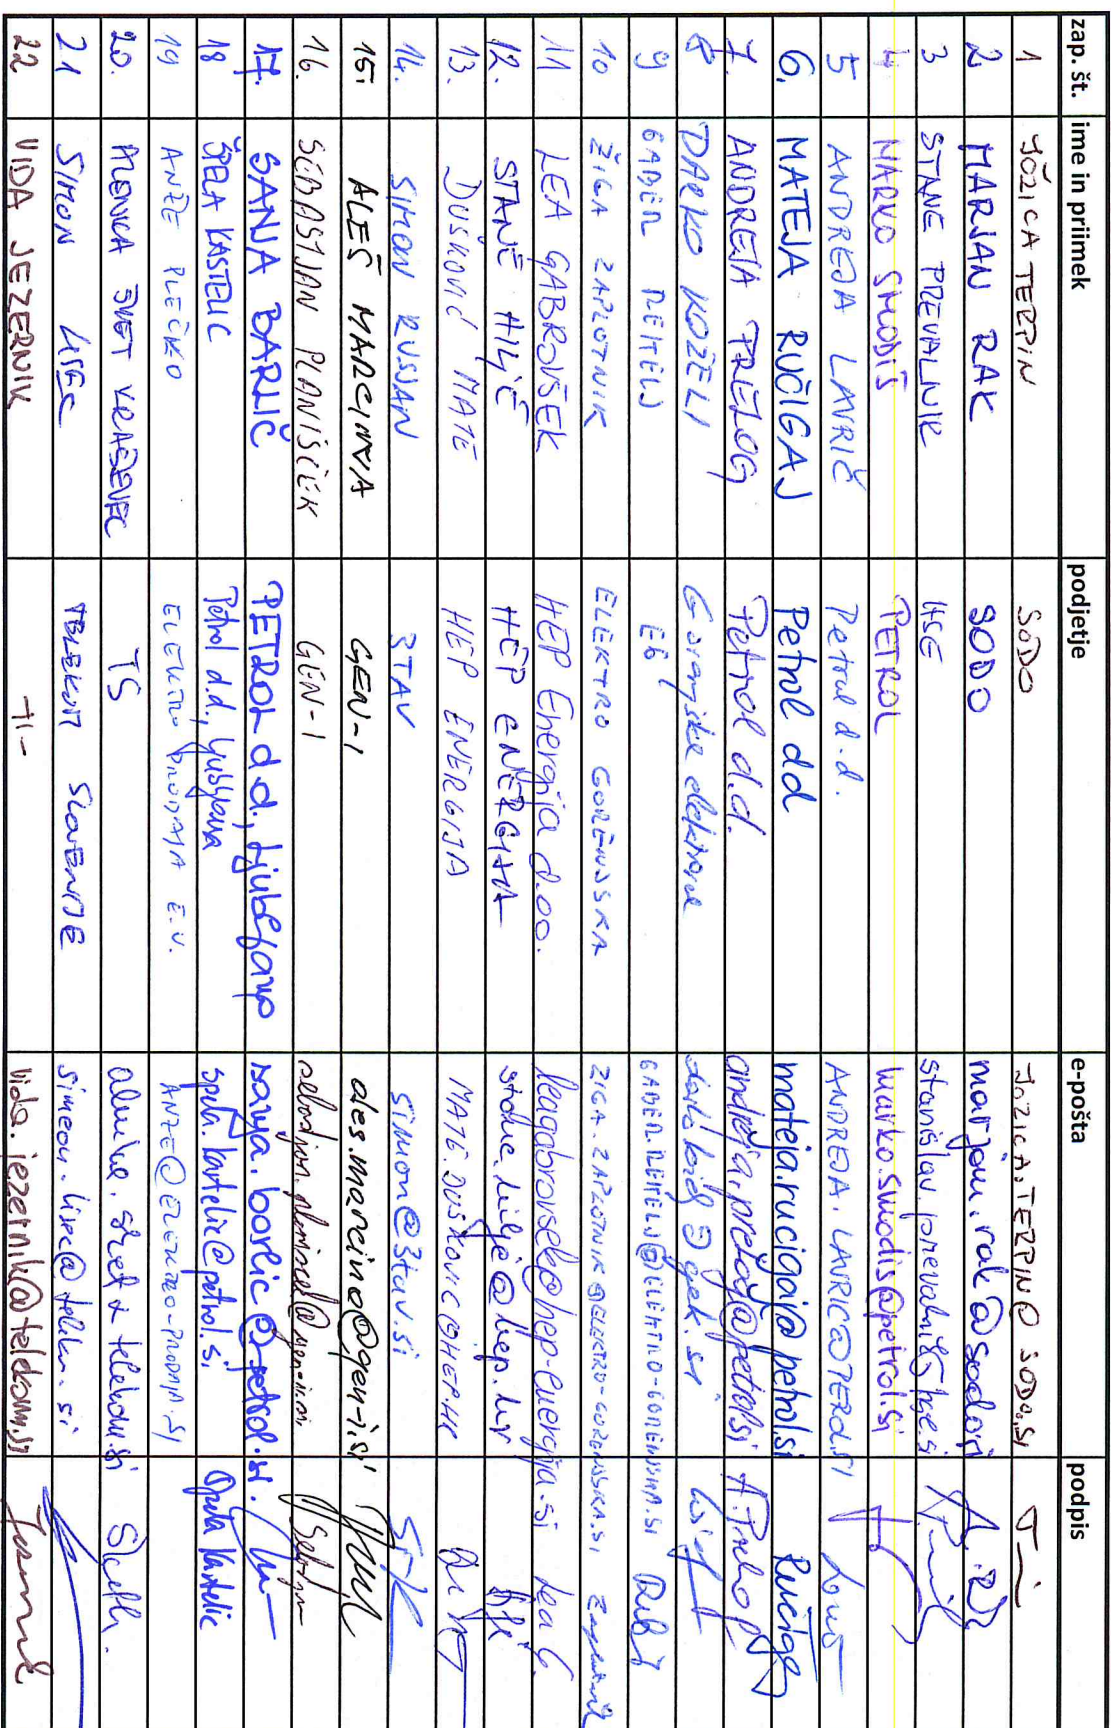 zap. št. ime in priimek podjetje e-pošta podpis
1 JOŽICA TERPIN SODO JOZICA.TERPIN@SODO.SI
2 MARJAN RAK SODO marjan.rak@sodo.si
3 STANE PREVALNIK HSE stanislav.prevalnik@hse.si
4 MARKO SMODIŠ PETROL marko.smodis@petrol.si
5 ANDREJA LAVRIČ Petrol d.d. ANDREJA.LAVRIC@PETROL.SI
6. MATEJA RUČIGAJ Petrol dd mateja.rucigaj@petrol.si Ručigaj
7. ANDREJA PRELOG Petrol d.d. andreja.prelog@petrol.si A. Prelog
8 DARKO KOZELJ Gorenjske elektrarne
9 GABER E6
10 ŽIGA ZAPLOTNIK ELEKTRO GORENJSKA ZIGA.ZAPLOTNIK@ELEKTRO-GORENJSKA.SI Zaplotnik
11 LEA GABROVŠEK HEP Energija d.o.o. leagabrovsek@hep-energija.si Lea G.
12. STANE HILJE HEP ENERGIJA
13. DUŠKOVIĆ MATE HEP ENERGIJA MATE.DUŠKOVIC@HEP.HR
14. SIMON RUSJAN 3TAV simon@3tav.si
15. ALEŠ MARCINA GEN-I ales.marcina@gen-i.si
16. SEBASTJAN PLANIŠČEK GEN-I
17. SANJA BARLIČ PETROL d.d., Ljubljana sanja.barlic@petrol.si
18 ŠPELA KASTELIC Petrol d.d., Ljubljana spela.kastelic@petrol.si Špela Kastelic
19 ANŽE PLEČKO ELEKTRO PRODAJA E.U. ANZE@ELEKTRO-PRODAJA.SI
20. ALENKA SVET TS
21 SIMON LISEC TELEKOM SLOVENIJE
22 VIDA JEZERNIK -11- vida.jezernik@telekom.si